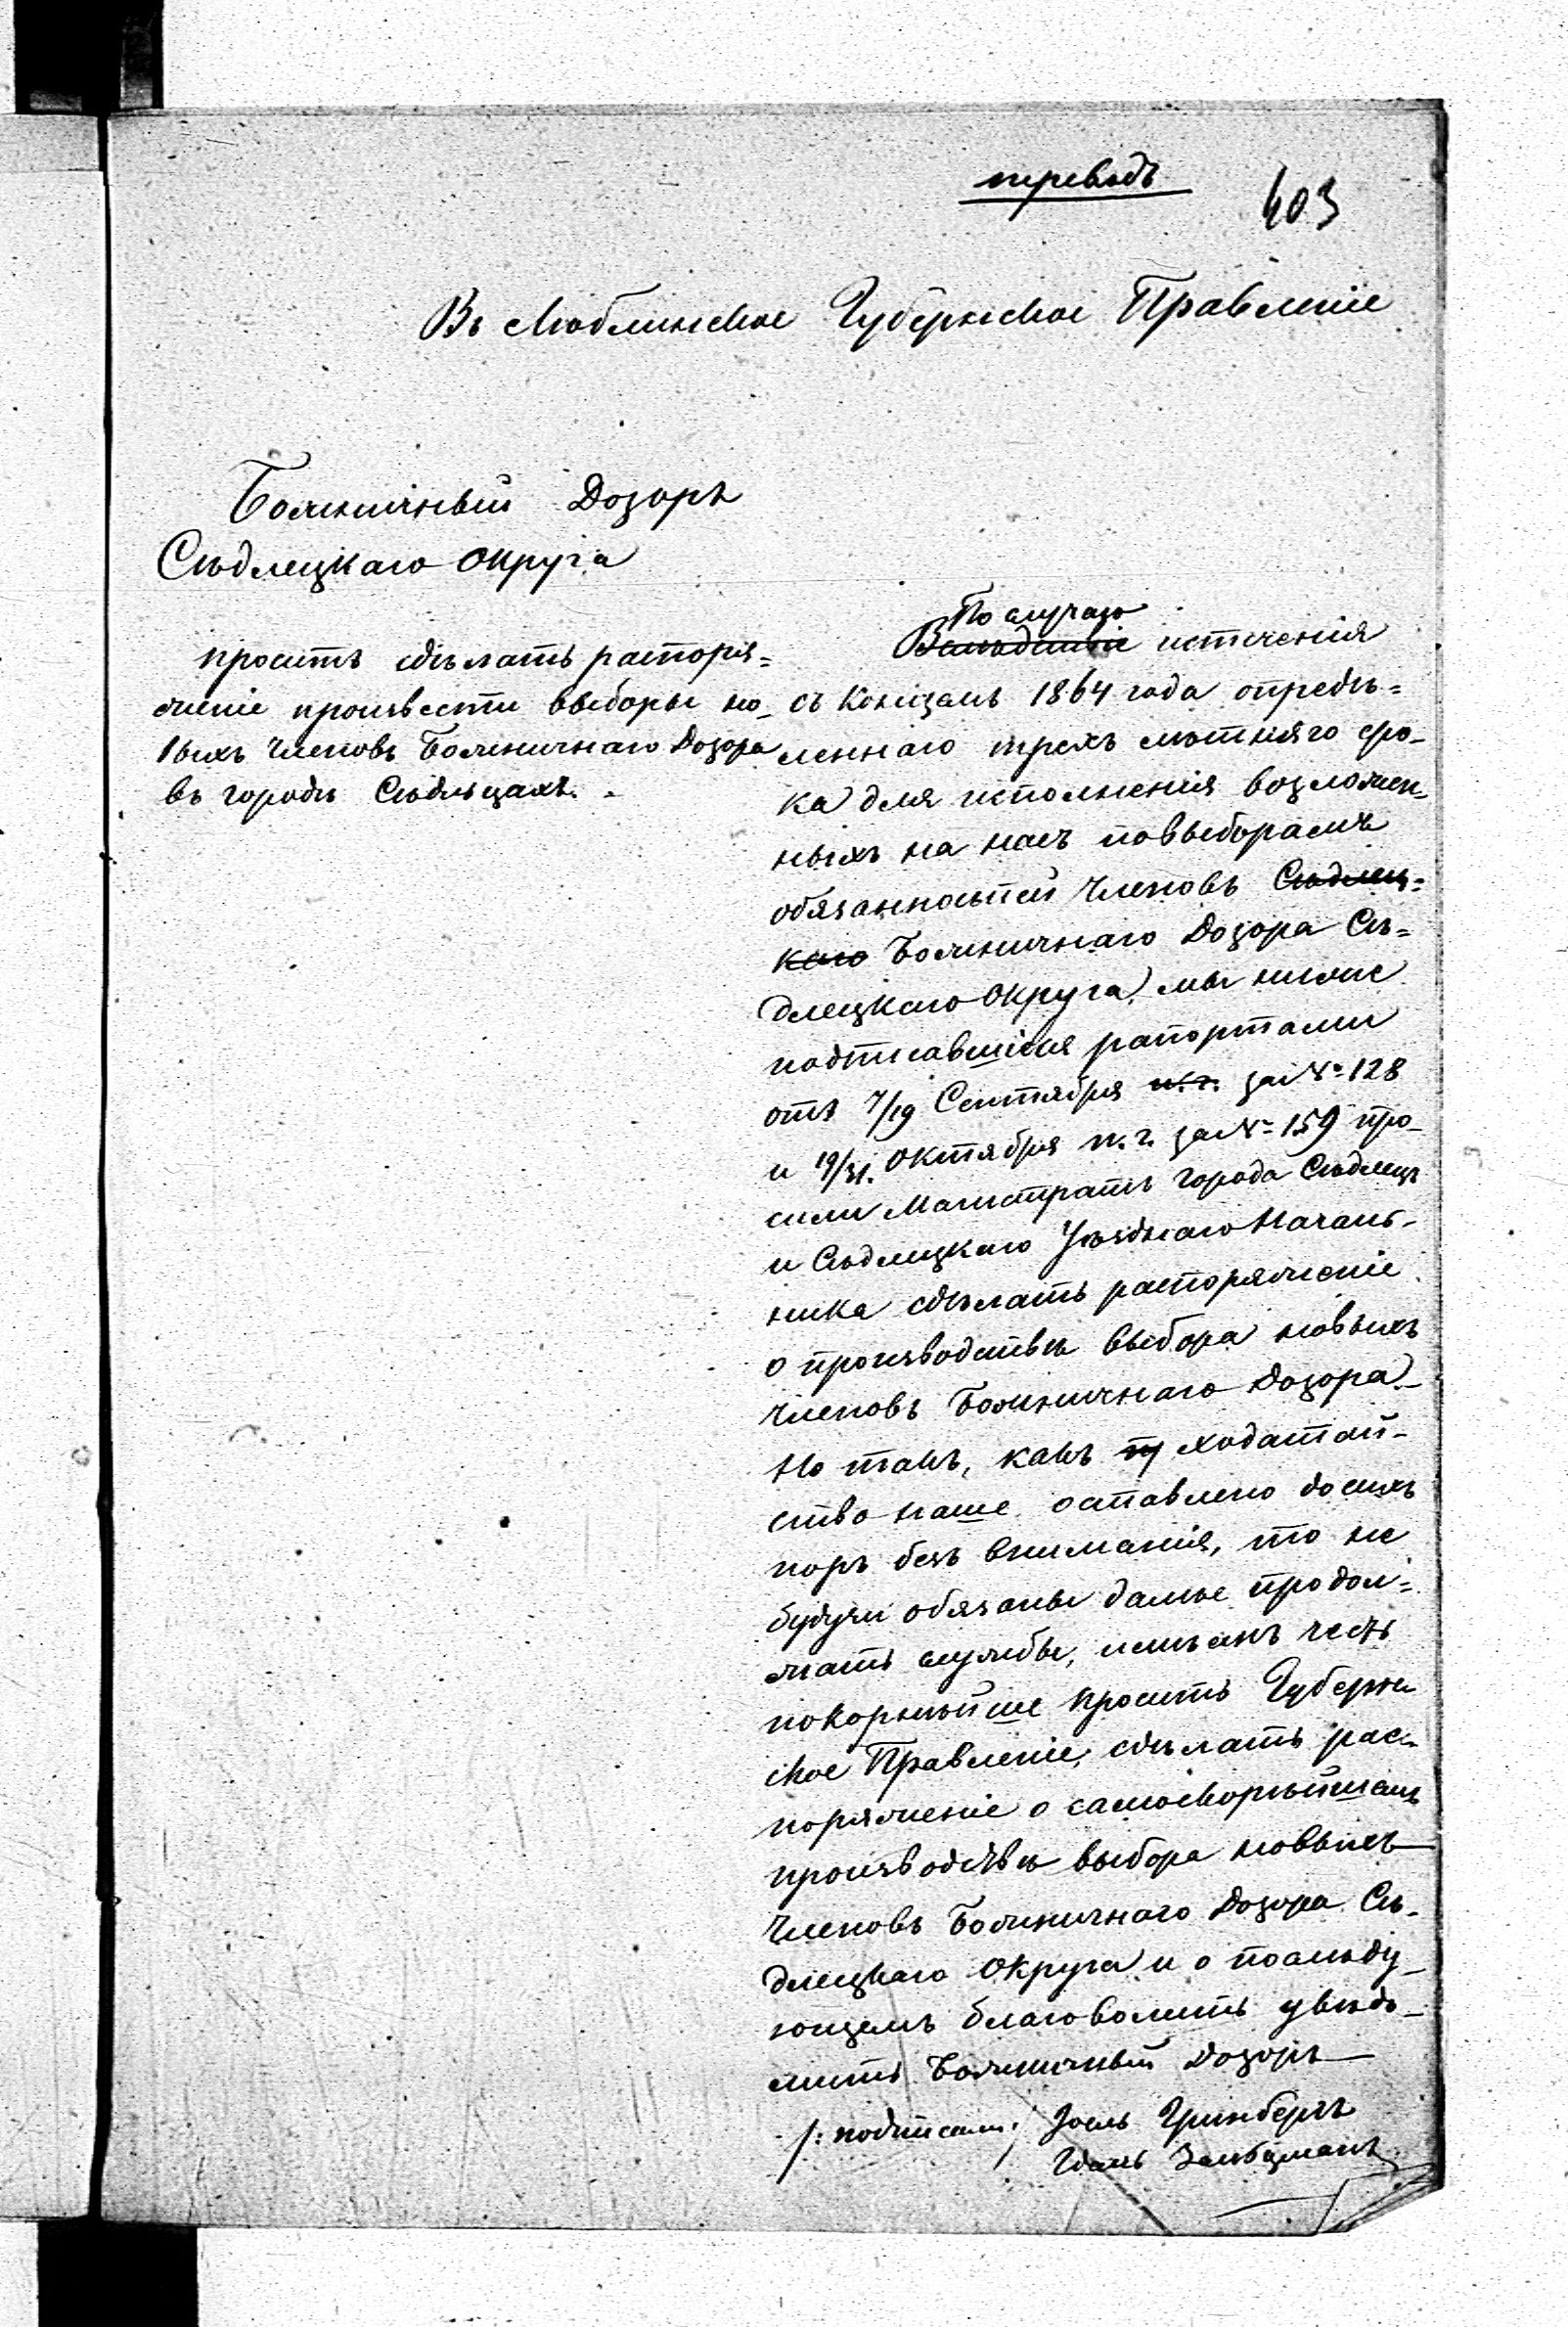 переводъ
403
Въ Люблинское Губернское Правленіе
Божничный Дозоръ
Сѣдлецкаго Округа
проситъ сдѣлать распоря=
женіе произвести выборы но-
выхъ Членовъ Божничнаго Дозора
въ городѣ Сѣдльцахъ.
По случаю
Вслѣдствіе истеченія
съ концемъ 1864 года опредѣ=
леннаго трехъ лѣтняго сро-
ка для исполненія возложен-
ныхъ на насъ по выборамъ
обязанностей Членовъ Сѣдлец=
каго Божничнаго Дозора Сѣ=
длецкаго Округа, мы ниже
подписавшіеся рапортами
отъ 7/19 Сентября н.г. за № 128
и 19/31 Октября н. г. за № 159 про-
сили Магистратъ города Сѣдлецъ
и Сѣдлецкаго Уѣзднаго Началь-
ника сдѣлать распоряженіе
о производствѣ выбора новыхъ
Членовъ Божничнаго Дозора.
Но такъ, какъ ходатай-
ство наше оставлено до сихъ
поръ безъ вниманія, то не
будучи обязаны далѣе продол=
жать службы, имѣемъ честь
покорнѣйше просить Губерн
ское Правленіе, сдѣлать рас-
поряженіе о самоскорѣйшемъ
производствѣ выбора новыхъ
Членовъ Божничнаго Дозора Сѣ-
длецкаго Округа и о послѣду-
ющемъ благоволить увѣдо-
мить Божничный Дозоръ
/: подписали: / Іоель Гринбергъ
Зальцманъ